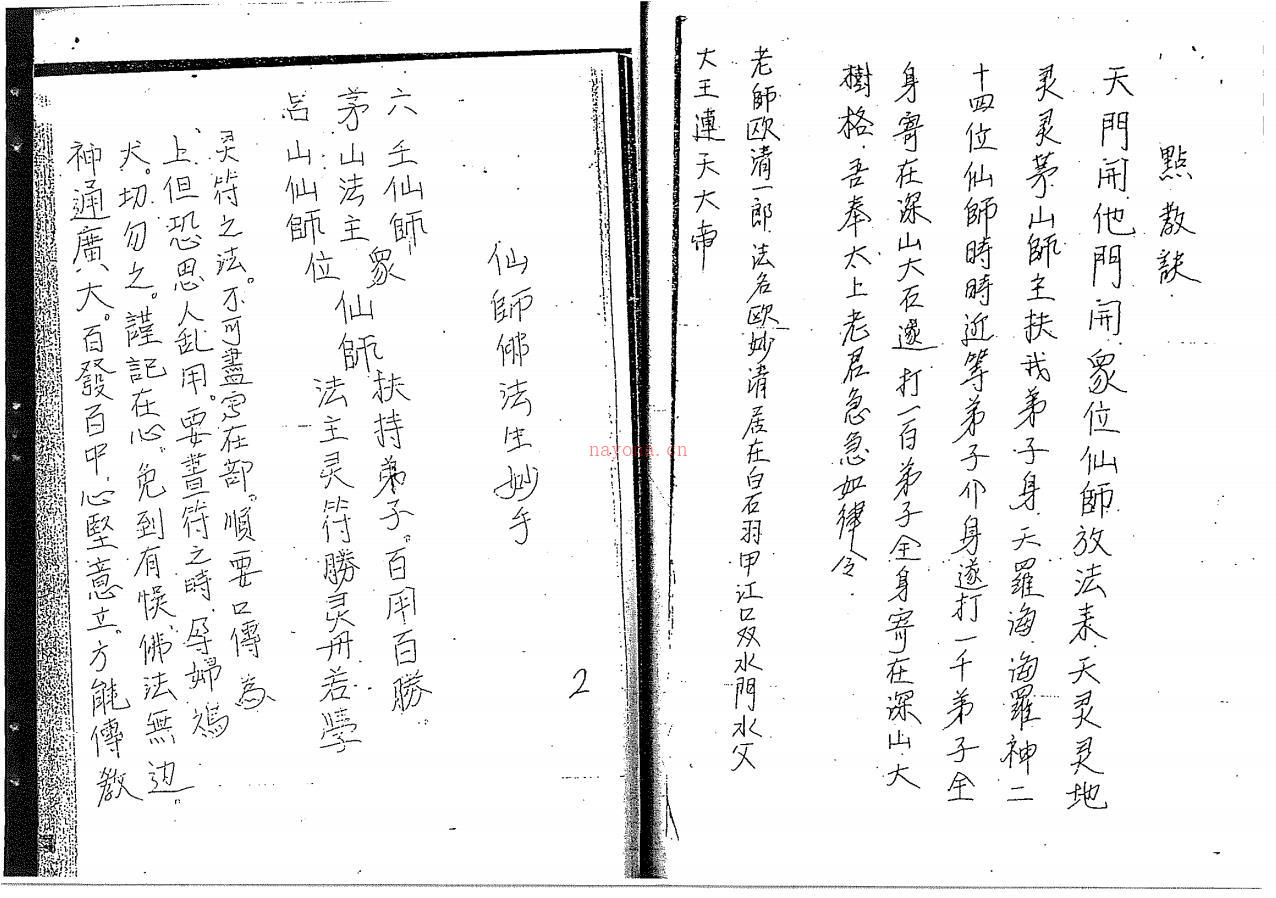 點教訣
天門開他門開眾位仙師放法來天灵灵地
灵灵茅山師主扶我弟子身天羅海海羅神二
十四位仙師時時近等弟子介身邃打一千弟子全
身寄在深山大石邃打一百弟子全身寄在深山大
樹格吾奉太上老君急急如律令
老師欧清一郎法名欧妙清居在白石羽甲江口双水門水父
大王連天大帝
仙師佛法生妙手
六壬仙師
茅山法主 眾仙師扶持弟子。百用百勝。
呂山仙師位 法主灵符勝灵丹若學
灵符之法。不可盡寫在部。順要口傳為
上但恐思人乱用。要畫符之時。孕婦禡
犬。切勿之。謹記在心。免到有悞佛法無边。
神通廣大。百發百中。心堅意立。方能傳教
2
nayona.cn